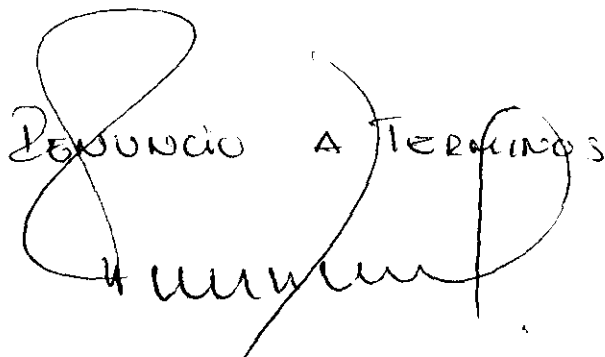 RENUNCIO A TERMINOS